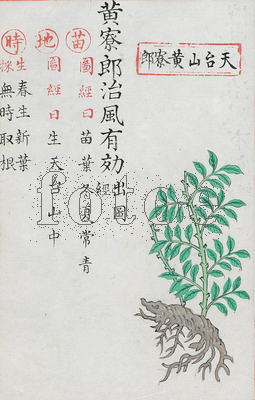 天台山黄寮郎
黄寮郎治風有効出圖經
苗圖經曰苗葉冬夏常青
地圖經曰生天台山中
時生春生新葉
採無時取根
fotoe